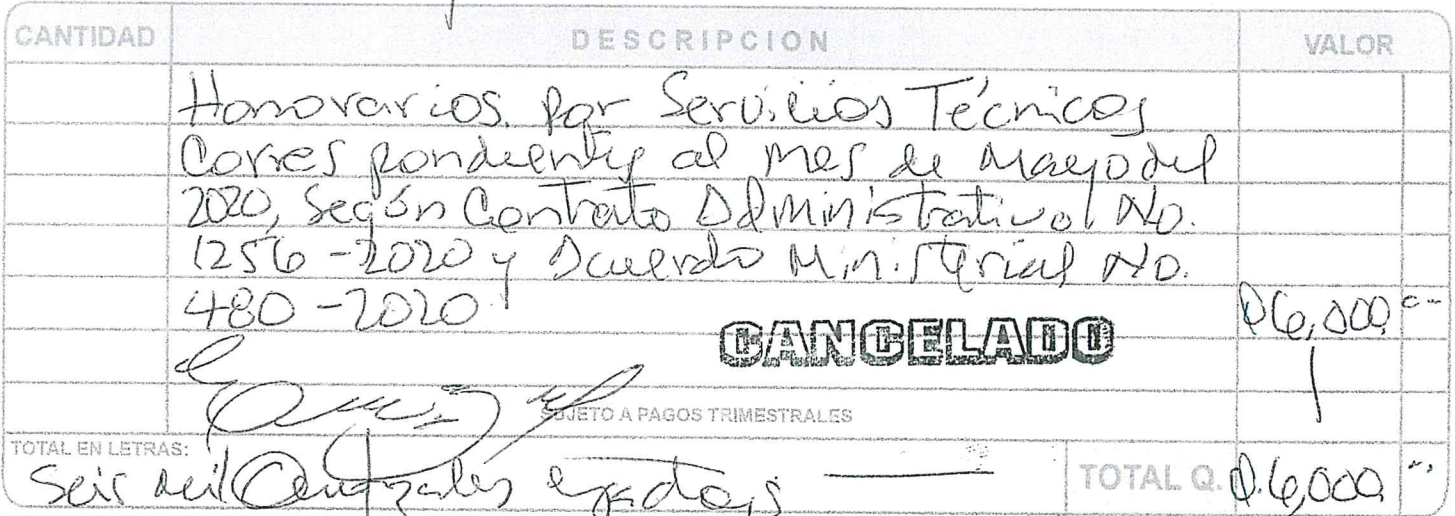 CANTIDAD DESCRIPCION VALOR
Honorarios por Servicios Técnicos
Correspondiente al mes de Mayo del
2020, Según Contrato Administrativo No.
1256-2020 y Acuerdo Ministerial No.
480-2020 Q6,000.00
CANCELADO
SUJETO A PAGOS TRIMESTRALES
TOTAL EN LETRAS:
Seis mil Quetzales exactos TOTAL Q. Q.6,000.00